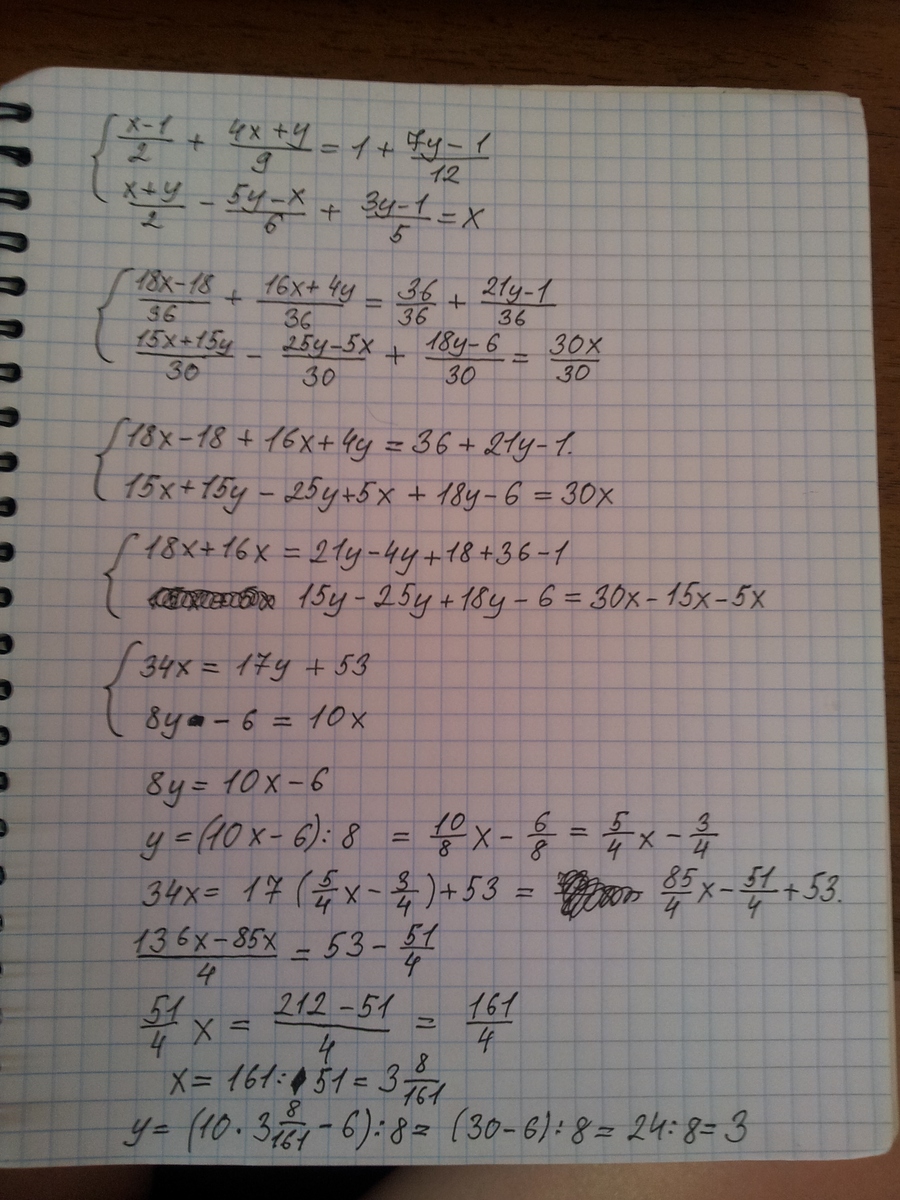 { (x-1)/2 + (4x+y)/9 = 1 + (7y-1)/12
(x+y)/2 - (5y-x)/6 + (3y-1)/5 = x
{ (18x-18)/36 + (16x+4y)/36 = 36/36 + (21y-1)/36
(15x+15y)/30 - (25y-5x)/30 + (18y-6)/30 = 30x/30
{ 18x-18 + 16x+4y = 36 + 21y-1.
15x+15y - 25y+5x + 18y-6 = 30x
{ 18x+16x = 21y-4y+18+36-1
15y-25y+18y-6 = 30x-15x-5x
{ 34x = 17y + 53
8y - 6 = 10x
8y = 10x-6
y = (10x-6):8 = 10/8 x - 6/8 = 5/4 x - 3/4
34x = 17 (5/4 x - 3/4)+53 = 85/4 x - 51/4 + 53.
(136x-85x)/4 = 53 - 51/4
51/4 x = (212-51)/4 = 161/4
x = 161:51 = 3 8/161
y = (10 · 3 8/161 - 6):8 = (30-6):8 = 24:8 = 3